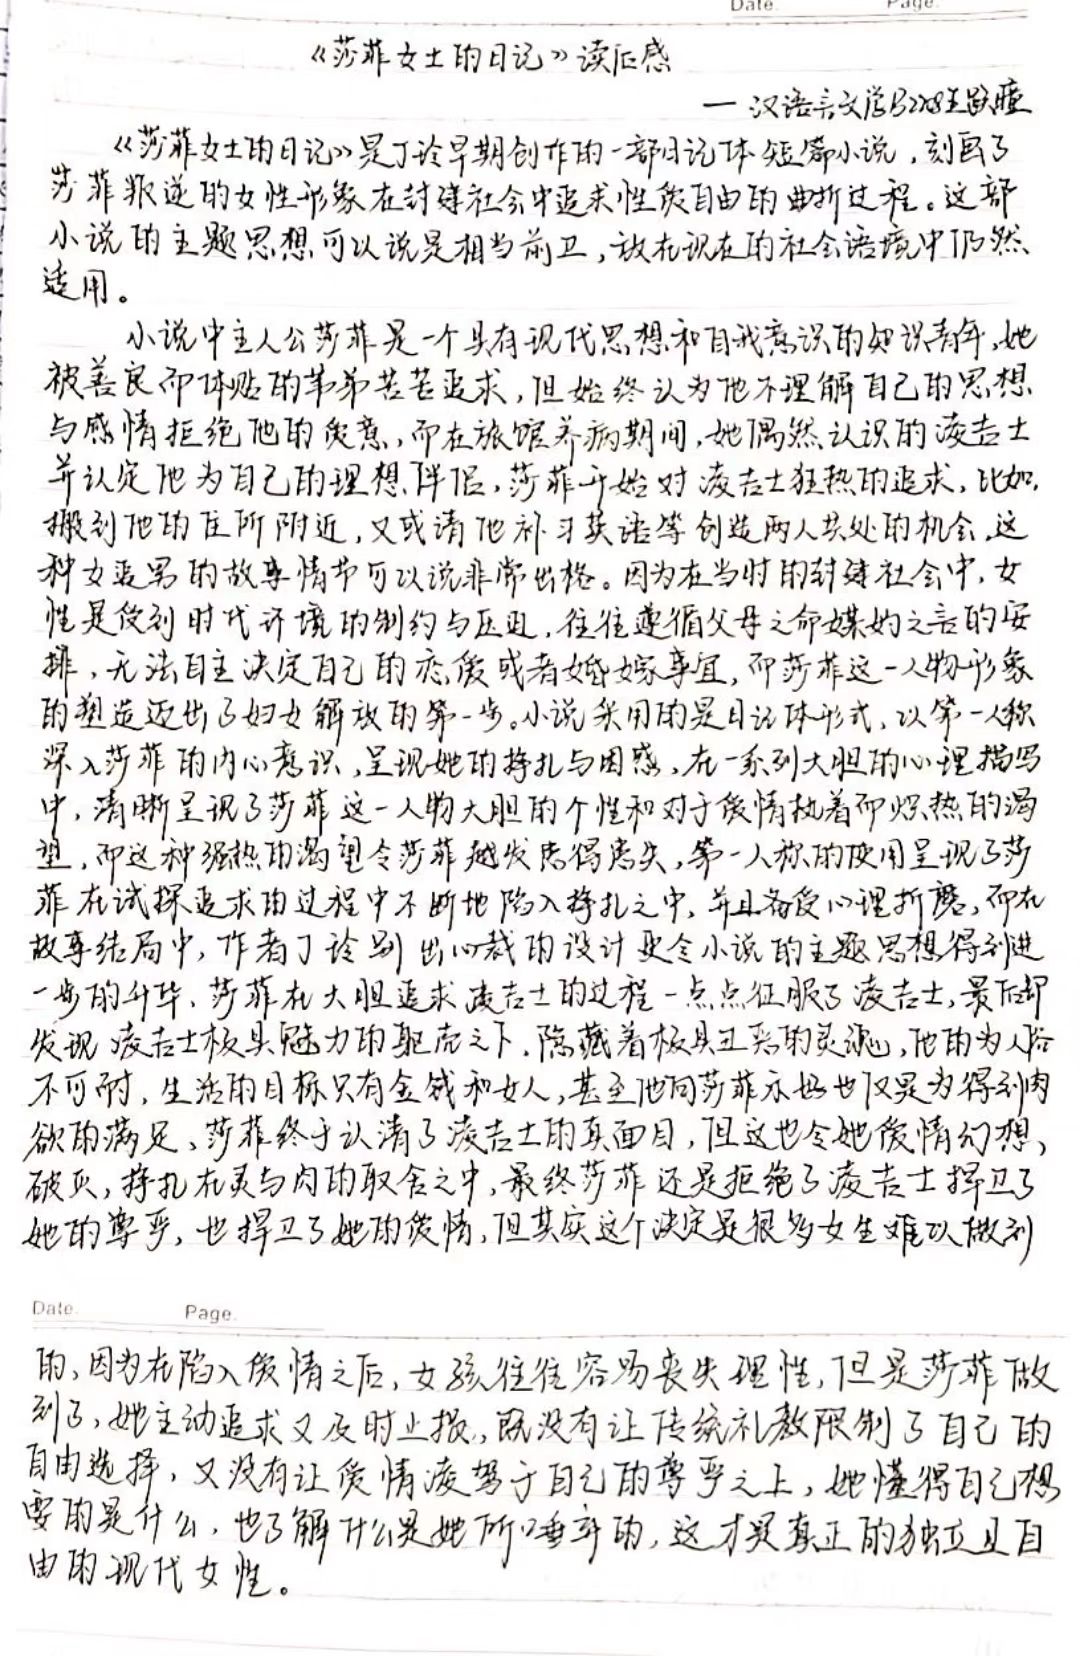 Date. Page.
《莎菲女士的日记》读后感
— 汉语言文学B228王
《莎菲女士的日记》是丁玲早期创作的一部日记体短篇小说，刻画了
莎菲叛逆的女性形象在封建社会中追求性爱自由的曲折过程。这部
小说的主题思想可以说是相当前卫，放在现在的社会语境中仍然
适用。
小说中主人公莎菲是一个具有现代思想和自我意识的知识青年，她
被善良而体贴的苇弟苦苦追求，但始终认为他不理解自己的思想
与感情拒绝他的爱意，而在旅馆养病期间，她偶然认识的凌吉士
并认定他为自己的理想伴侣，莎菲开始对凌吉士狂热的追求，比如，
搬到他的住所附近，又或请他补习英语等创造两人共处的机会，这
种女追男的故事情节可以说非常出格。因为在当时的封建社会中，女
性是受到时代环境的制约与压迫，往往遵循父母之命媒妁之言的安
排，无法自主决定自己的恋爱或者婚嫁事宜，而莎菲这一人物形象
的塑造迈出了妇女解放的第一步。小说采用的是日记体形式，以第一人称
深入莎菲的内心意识，呈现她的挣扎与困惑，在一系列大胆的心理描写
中，清晰呈现了莎菲这一人物大胆的个性和对于爱情执着而炽热的渴
望，而这种强热的渴望令莎菲越发患得患失，第一人称的使用呈现了莎
菲在试探追求的过程中不断地陷入挣扎之中，并且备受心理折磨，而在
故事结局中，作者丁玲别出心裁的设计更令小说的主题思想得到进
一步的升华，莎菲在大胆追求凌吉士的过程一点点征服了凌吉士，最后却
发现凌吉士极具魅力的躯壳之下，隐藏着极具丑恶的灵魂，他的为人俗
不可耐，生活的目标只有金钱和女人，甚至他向莎菲示好也仅是为得到肉
欲的满足，莎菲终于认清了凌吉士的真面目，但这也令她爱情幻想，
破灭，挣扎在灵与肉的取舍之中，最终莎菲还是拒绝了凌吉士捍卫了
她的尊严，也捍卫了她的爱情，但其实这个决定是很多女生难以做到
Date. Page.
的，因为在陷入爱情之后，女孩往往容易丧失理性，但是莎菲做
到了，她主动追求又及时止损，既没有让传统礼教限制了自己的
自由选择，又没有让爱情凌驾于自己的尊严之上，她懂得自己想
要的是什么，也了解什么是她所唾弃的，这才是真正的独立且自
由的现代女性。